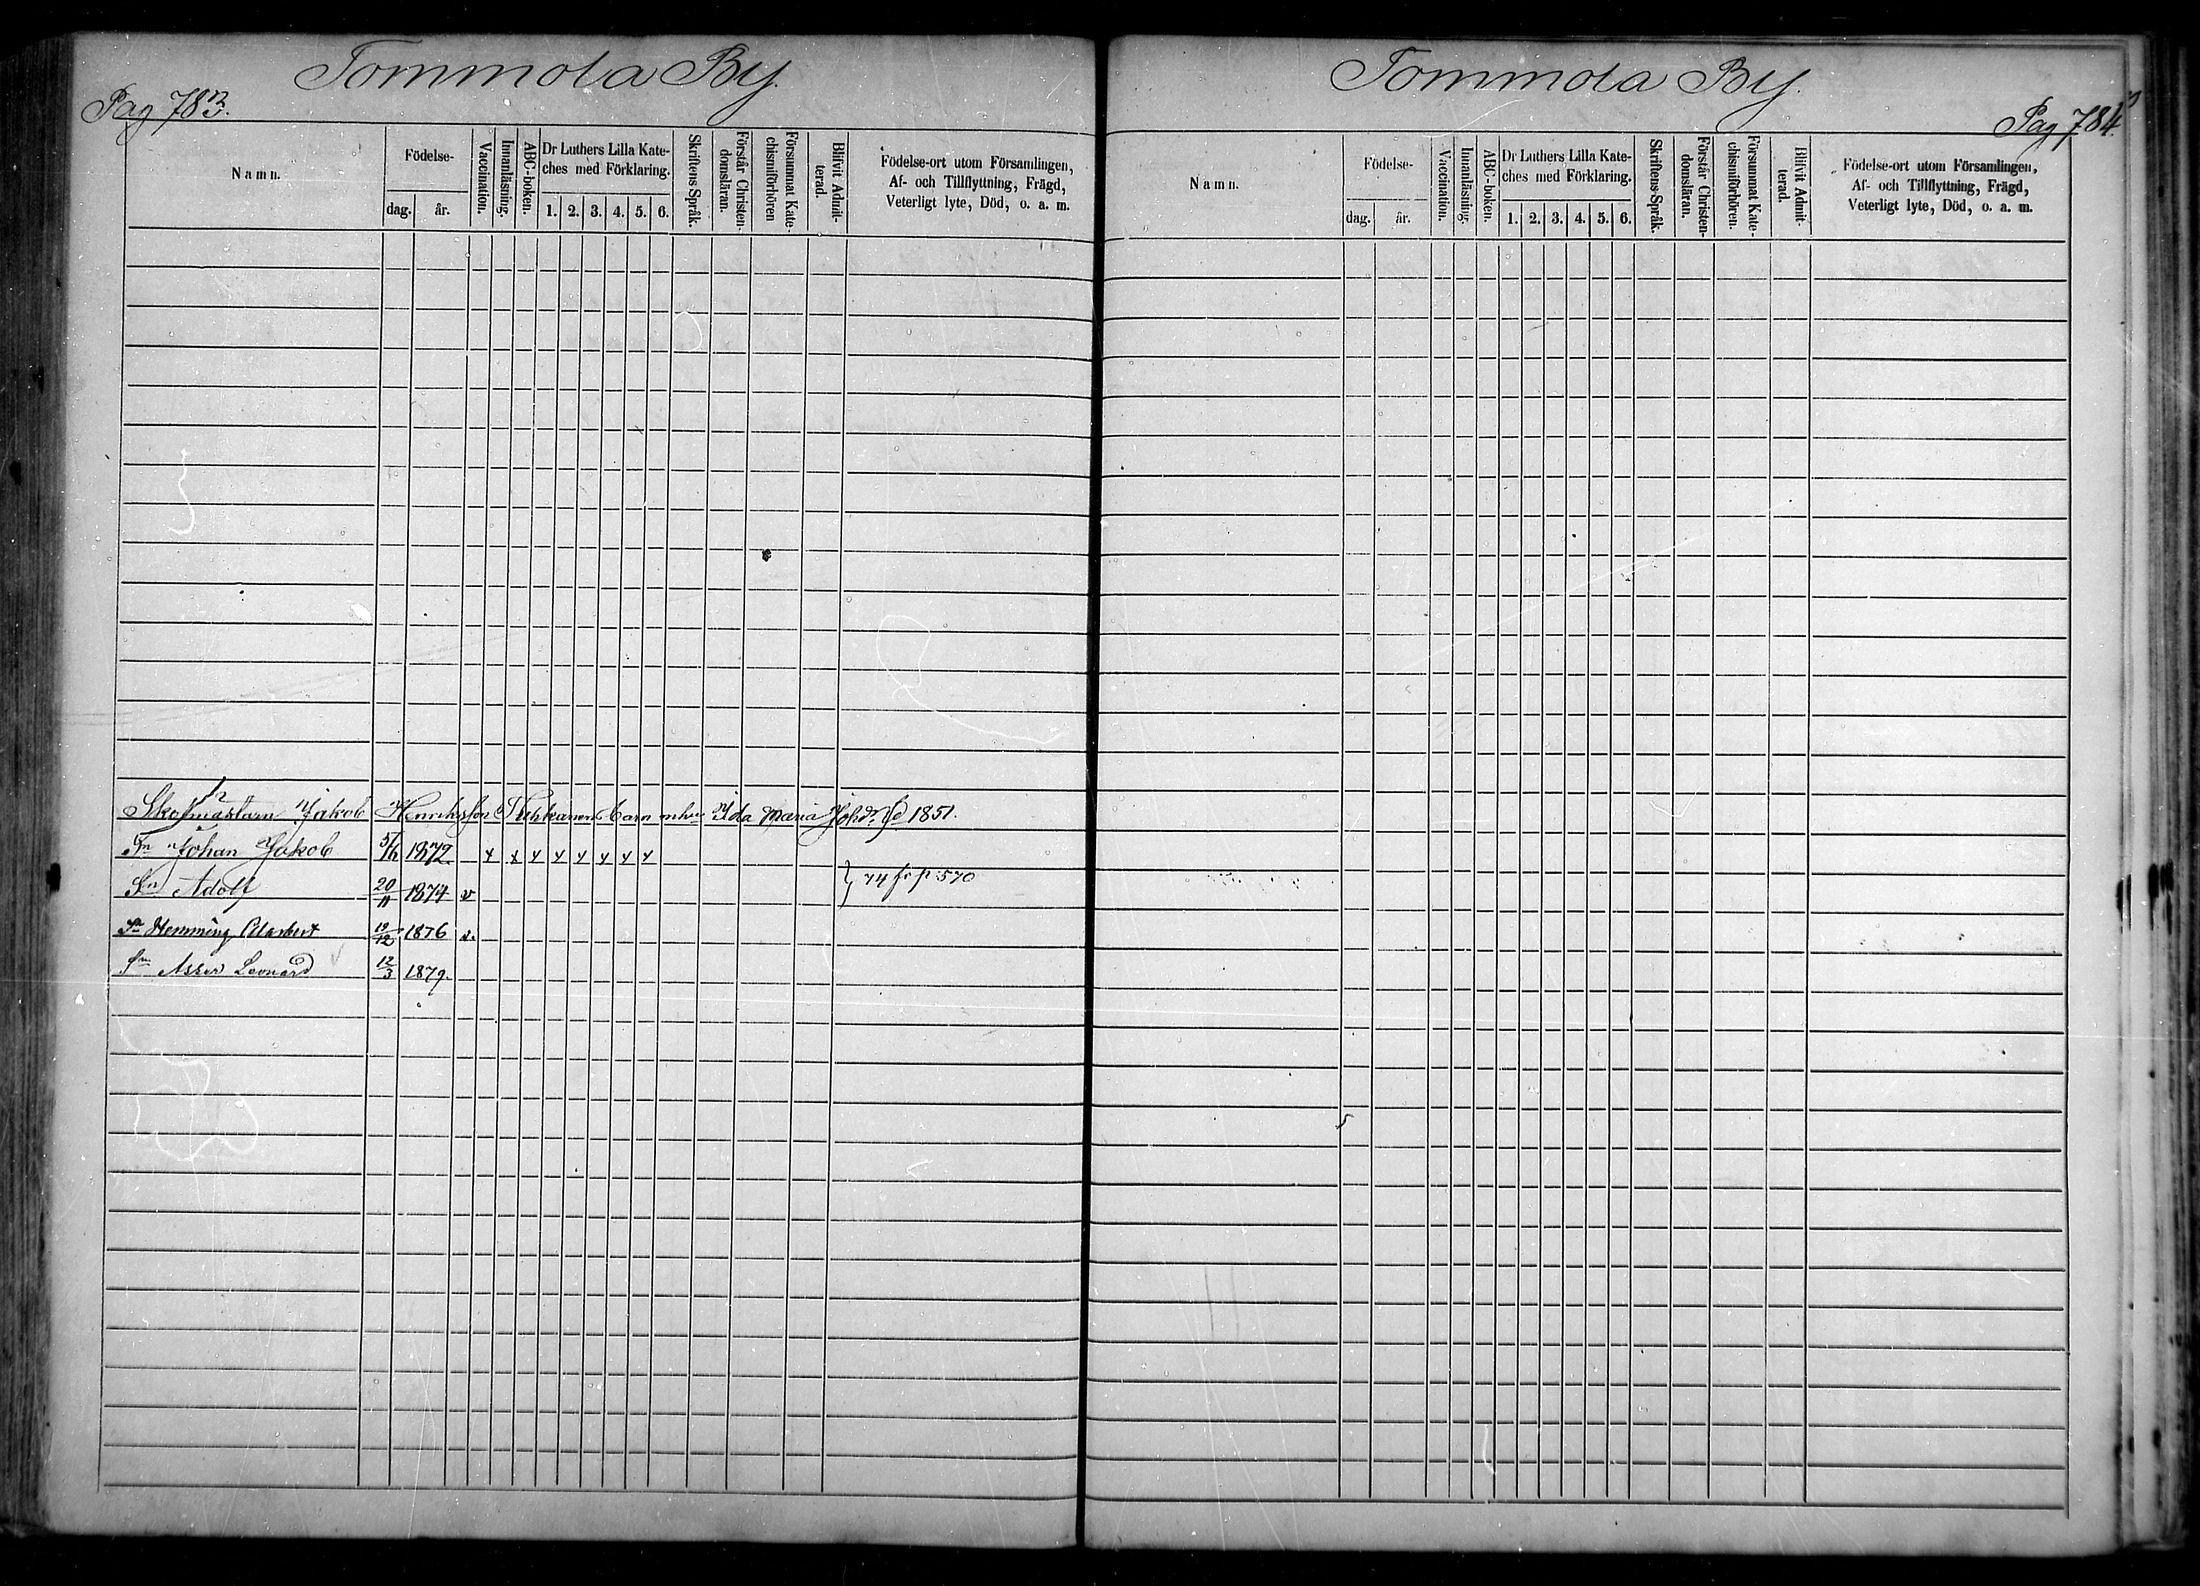 Tommola By.
Pag 783.
Namn.
Födelse-
dag.
år.
Vaccination.
Innanläsning.
ABC-boken.
Dr Luthers Lilla Kate-
ches med Förklaring.
1. 2. 3. 4. 5. 6.
Skriftens Språk.
Förstår Christen-
domsläran.
Försummat Kate-
chismiförhören
Blifvit Admit-
terad.
Födelse-ort utom Församlingen,
Af- och Tillflyttning, Frägd,
Veterligt lyte, Död, o. a. m.
Jakob Henriksson Barn Ida Maria 1851.
Sn Johan Jakob 5/6 1872 x x x x x x x x
Sn Adolf 20/11 1874 v } 74 fr p. 570
Sn Hemming 19/12 1876 v.
Sn Asser Leonard 12/3 1879.
Tommola By.
Pag 784.
Namn.
Födelse-
dag.
år.
Vaccination.
Innanläsning.
ABC-boken.
Dr Luthers Lilla Kate-
ches med Förklaring.
1. 2. 3. 4. 5. 6.
Skriftens Språk.
Förstår Christen-
domsläran.
Försummat Kate-
chismiförhören.
Blifvit Admit-
terad.
Födelse-ort utom Församlingen,
Af- och Tillflyttning, Frägd,
Veterligt lyte, Död, o. a. m.